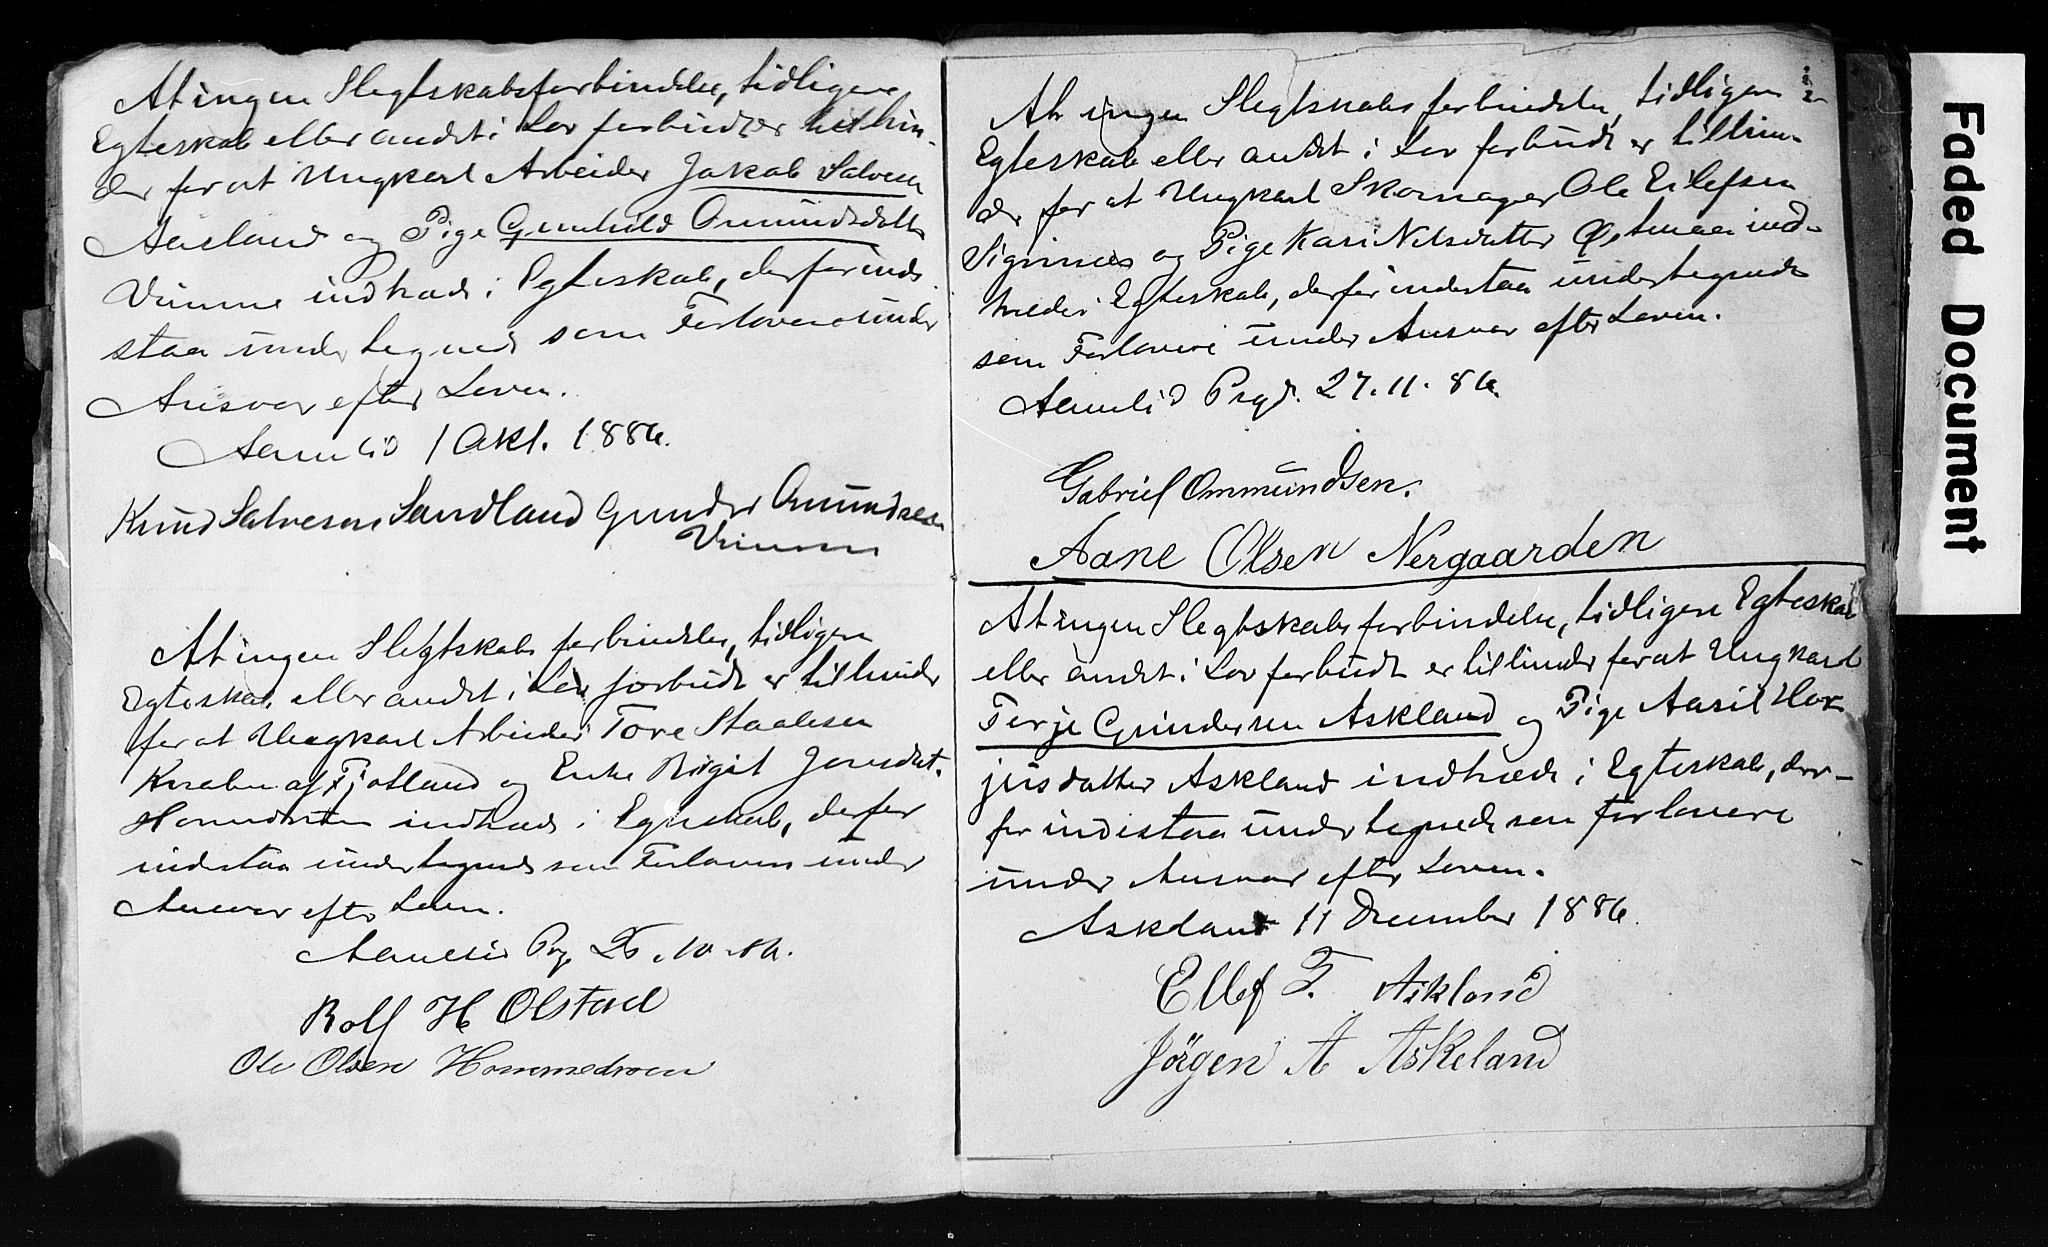 At ingen Slegtskabsforbindelse, tidligere
Egteskab eller andet i Lov forbudt er til hin-
der for at Ungkarl Arbeider Jakob Salvesen
Aasland og Pige Gunhild Omundsdatter
Vimme indtræde i Egteskab, derfor inde
staa undertegnede som Forlovere under
Ansvar efter Loven.
Aamlid 1 Okt. 1886.
Knud Salvesen Sandland Gunder Omundsen
Vimme
At ingen Slegtskabsforbindelse, tidligere
Egteskab eller andet i Lov forbudt er til hinder
for at Ungkarl Arbeider Tore Staalesen
Knaben af Fjotland og Enke Birgit Jonsdat.
indtræde i Egteskab, derfor
indestaa undertegnede som Forlovere under
Ansvar efter Loven.
Aamlid Prg. 10. 86.
Rolf H Olstad
Ole Olsen Hommedroen
At ingen Slegtskabsforbindelse, tidligere
Egteskab eller andet i Lov forbudt er til hin-
der for at Ungkarl Skomager Ole Eilefsen
Signinæs og Pige Kari Nilsdatter Østmaa ind-
træde i Egteskab, derfor indestaa undertegnede
som Forlovere under Ansvar efter Loven.
Aamlid Prgd. 27.11.86.
Gabriel Ommundsen.
Aane Olsen Nergaarden
At ingen Slegtskabsforbindelse, tidligere Egteskab
eller andet i Lov forbudt er til hinder for at Ungkarl
Terje Gundersen Askland og Pige Aasil Hor-
jusdatter Askland indtræde i Egteskab, der-
for indestaa undertegnede som forlovere
under Ansvar efter Loven.
Askland 11 December 1886.
Ellef T. Askland
Jörgen A Askeland
Faded Document